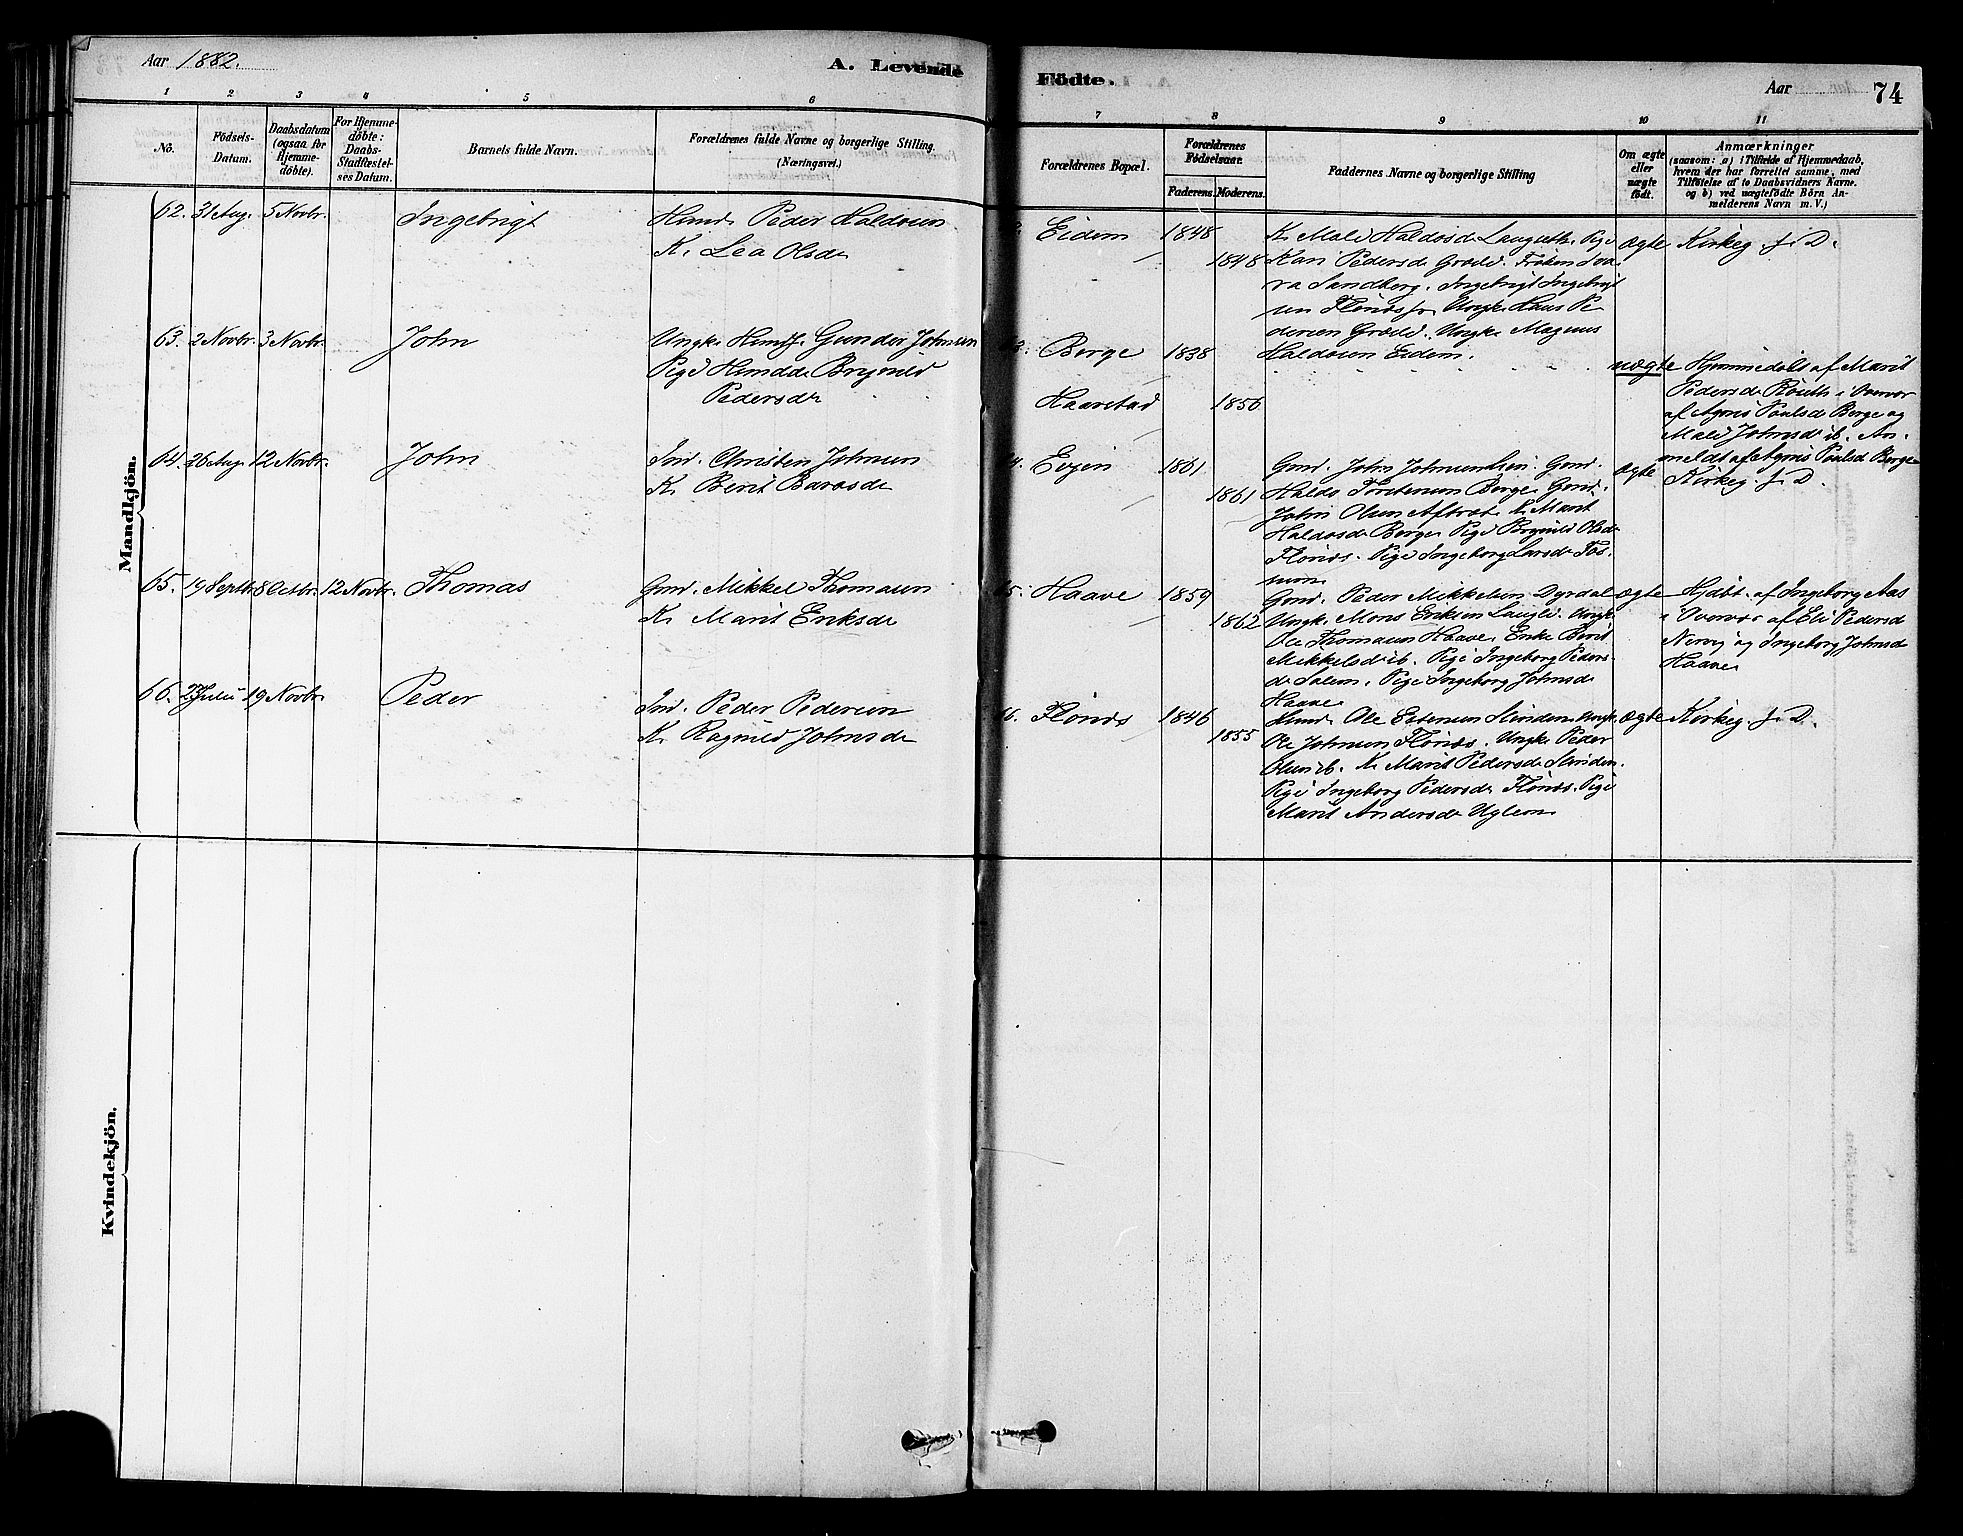 Aar 1882.
A. Levende Födte.
Aar 74
1 2 3 4 5 6 7 8 9 10 11
No.
Födsels-
Datum.
Daabsdatum
(ogsaa for
Hjemme-
döbte).
For Hjemme-
döbte:
Daabs-
Stadfæstel-
ses Datum.
Barnets fulde Navn.
Forældrenes fulde Navne og borgerlige Stilling.
(Næringsvei.)
Forældrenes Bopæl.
Forældrenes
Födselsaar.
Faderens. Moderens.
Faddernes Navne og borgerlige Stilling
Om ægte
eller
uægte
födt.
Anmærkninger
(saasom: a) i Tilfælde af Hjemmedaab,
hvem der har forrettet samme, med
Tilföielse af to Daabsvidners Navne.
og b) ved uægtefödte Börn An-
melderens Navn m. V.)
Mandkjön.
62. 31 Aug. 5 Novbr. Ingebrigt
Husmd. Peder Haldosen
K. Lea Olsdr
Eidem 1848
1848
K. Mali Haldosdr Langseth. Pige
Kari Pedersdr Græsli. Frøken Sva-
ra Sandberg. Ingebrigt Ingebrigt
sen Flönæs. Ungk. Hans Pe-
dersen Græsli. Ungk. Magnus
Haldosen Eidem.
ægte
Kirkeg. f. D.
63. 2 Novbr. 3 Novbr. John
Ungk. Gunder Johnsen
Pige Brynild
Pedersdr
Berge 1838
Haarstad 1856
uægte
Hjemmedöbt af Marit
Pedersdr Routh i Overvær
af Agnis Paulsd Berge og
Mali Johnsdr ib. An-
meldt af Agnis Paulsd Berge
64. 26 Aug. 12 Novbr. John
Ind. Christen Johnsen
K. Berit Baroosdr
Evjen 1861
1861
Gmd. John Johnsen Lien. Gmd.
Haldo Torstensen Berge. Gmd.
John Olsen Aftret. K. Marit
Haldosdr Berge. Pige Brynild Olsdr
Flönæs. Pige Ingeborg Larsdr Fos-
mon
ægte
Kirkeg. f. D.
65. 19 Septbr. 8 Octbr. 12 Novbr. Thomas
Gmd. Mikkel Thomasen
K. Marit Eriksdr
Haave 1859
1862
Gmd. Peder Mikkelsen Dyrdal
Ungk. Mons Eriksen Langli. Ungk.
Ole Thomasen Haave. Enke Berit
Mikkelsdr ib. Pige Ingeborg Peders-
dr Salem. Pige Ingeborg Johnsdr
Haave
ægte
Hjdöbt. af Ingeborg Aas
i Overvær af Eli Pedersd
Nervig og Ingeborg Johnsd
Haave
66. 23 Juli 19 Novbr. Peder
Ind. Peder Pedersen
K. Ragnild Johnsdr
Flönæs 1846
1855
Husmd. Ole Estensen Slinden. Ungk.
Ole Johnsen Flönæs. Ungk. Peder
Olsen ib. K. Marit Pedersdr Slinden.
Pige Ingeborg Pedersdr Flönæs. Pige
Marit Andersdr Uglem
ægte
Kirkeg. f. D.
Kvindekjön.